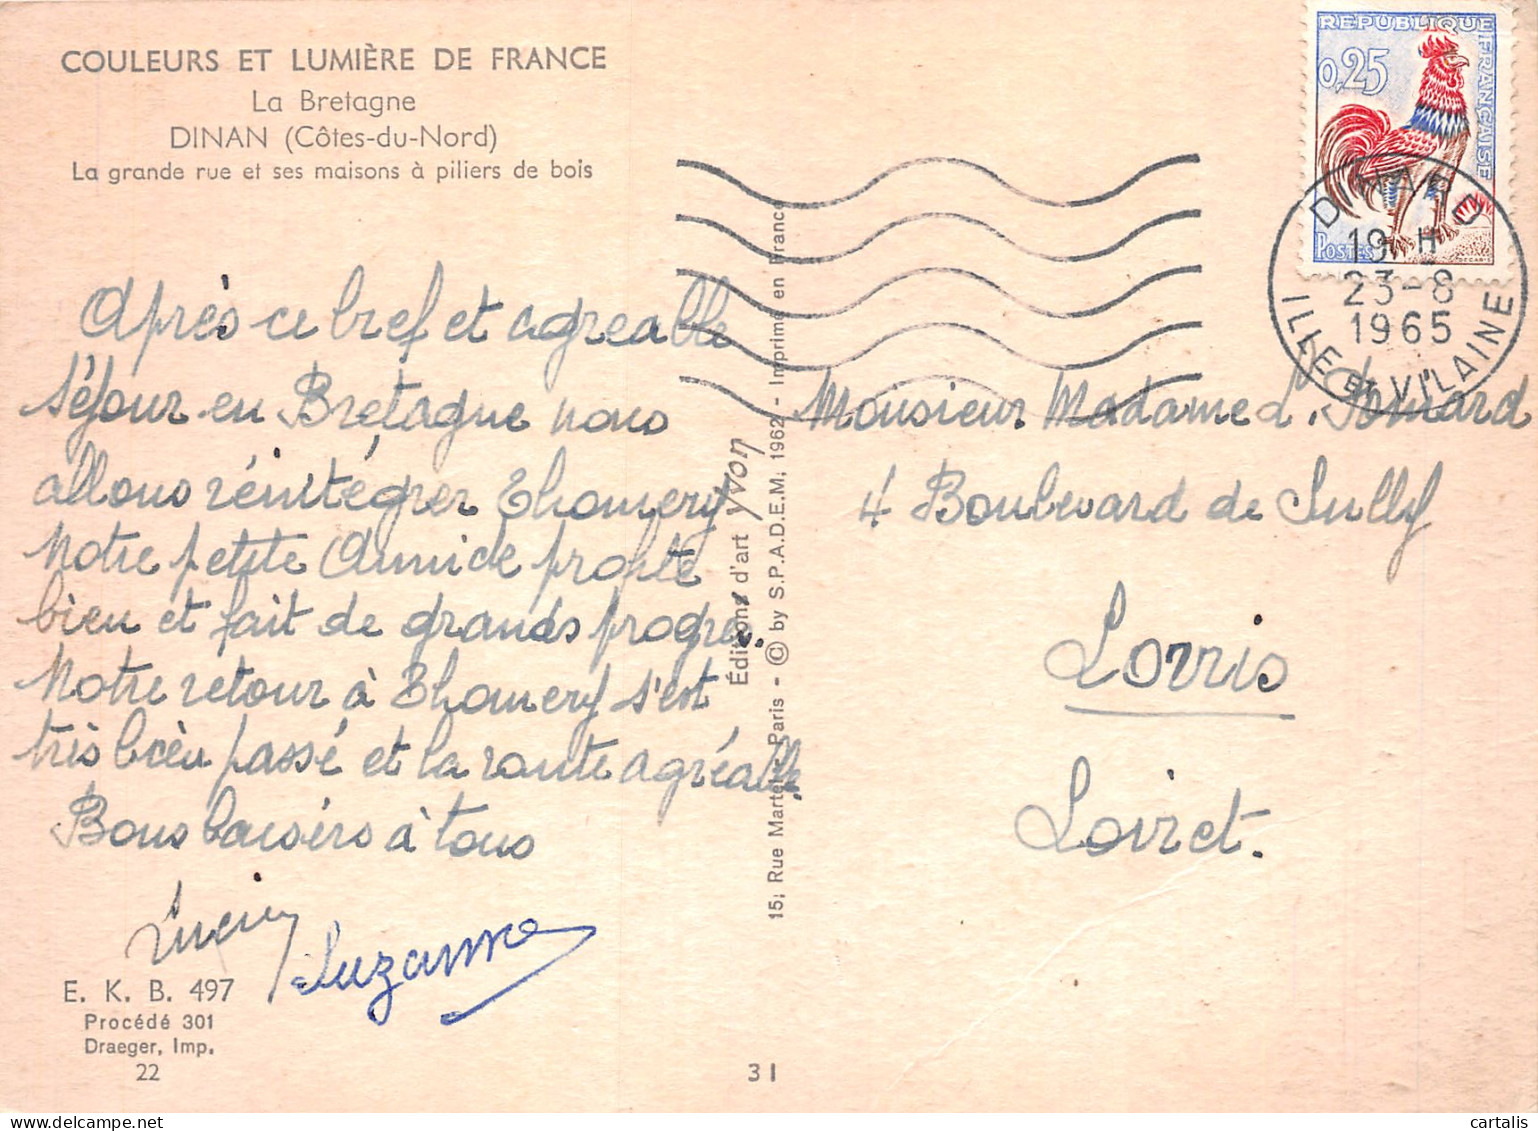 COULEURS ET LUMIÈRE DE FRANCE
La Bretagne
DINAN (Côtes-du-Nord)
La grande rue et ses maisons à piliers de bois
REPUBLIQUE FRANÇAISE
0,25
POSTES
DECARIS
DINARD
19 H
23-8
1965
ILLE ET VILAINE
Après ce bref et agreable
séjour en Bretagne nous
allons réintégrer Thomery
Notre petite Annick profite
bien et fait de grands progrès.
Notre retour à Thomery s'est
très bien passé et la route agréable.
Bons baisers à tous
Lucien
Suzanne
Monsieur Madame
4 Boulevard de Sully
Lorris
Loiret.
Éditions d'art yvon
15, Rue Martel, Paris - © by S.P.A.D.E.M. 1962 - Imprimé en France
E. K. B. 497
Procédé 301
Draeger, Imp.
22
31
cartalis